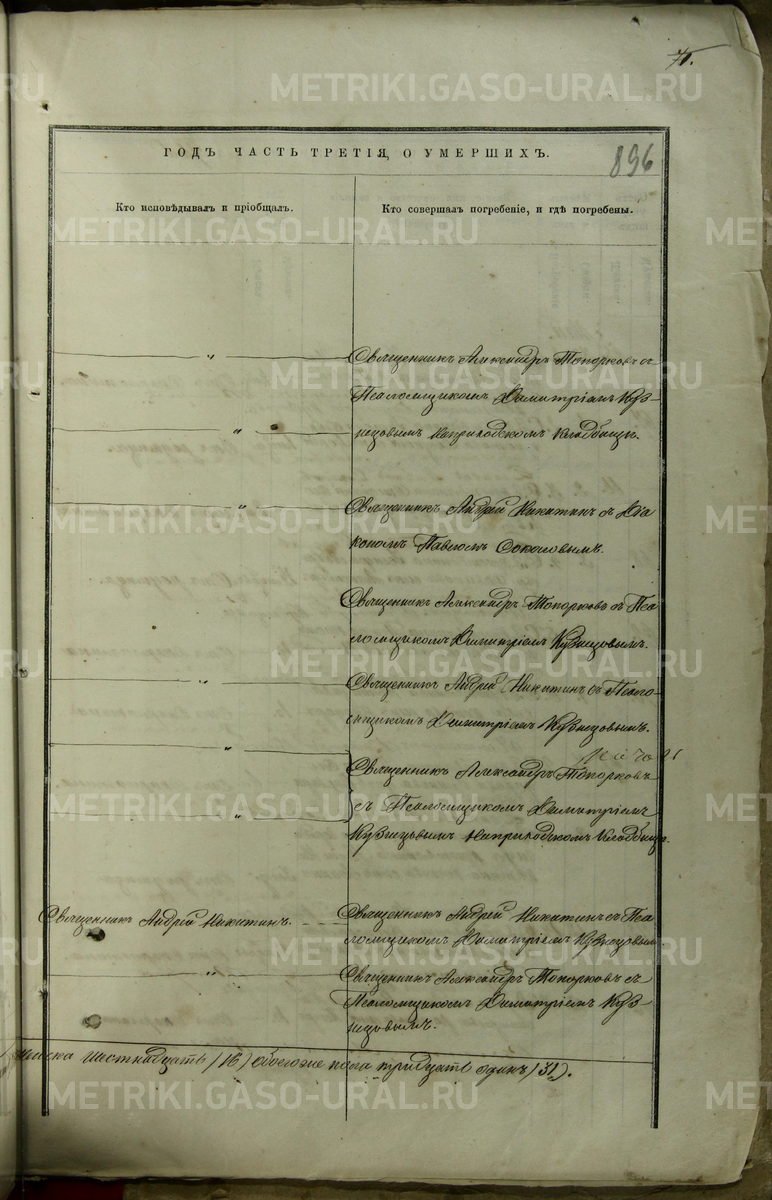 75.
ГОДЪ ЧАСТЬ ТРЕТІЯ, О УМЕРШИХЪ.
896
Кто исповѣдывалъ и пріобщалъ.
Кто совершалъ погребеніе, и гдѣ погребены.
Священникъ Александръ Топорковъ съ
Псаломщикомъ Димитріемъ Куз-
нецовымъ на приходскомъ кладбищѣ.
Священникъ Андрей Никитинъ съ Діа
кономъ Павломъ Соколовымъ.
Священникъ Александръ Топорковъ съ Пса
ломщикомъ Димитріемъ Кузнецовымъ.
Священникъ Андрей Никитинъ съ Псало-
мщикомъ Димитріемъ Кузнецовымъ.
Священникъ Александръ Топорковъ
съ Псаломщикомъ Димитріемъ
Кузнецовымъ на приходскомъ кладбищѣ.
Священникъ Андрей Никитинъ.
Священникъ Андрей Никитинъ съ Пса
ломщикомъ Димитріемъ Кузнецовымъ
Священникъ Александръ Топорковъ съ
Псаломщикомъ Димитріемъ Куз-
нецовымъ.
шестнадцать (16) обоего же пола тридцать одинъ (31).
METRIKI.GASO-URAL.RU